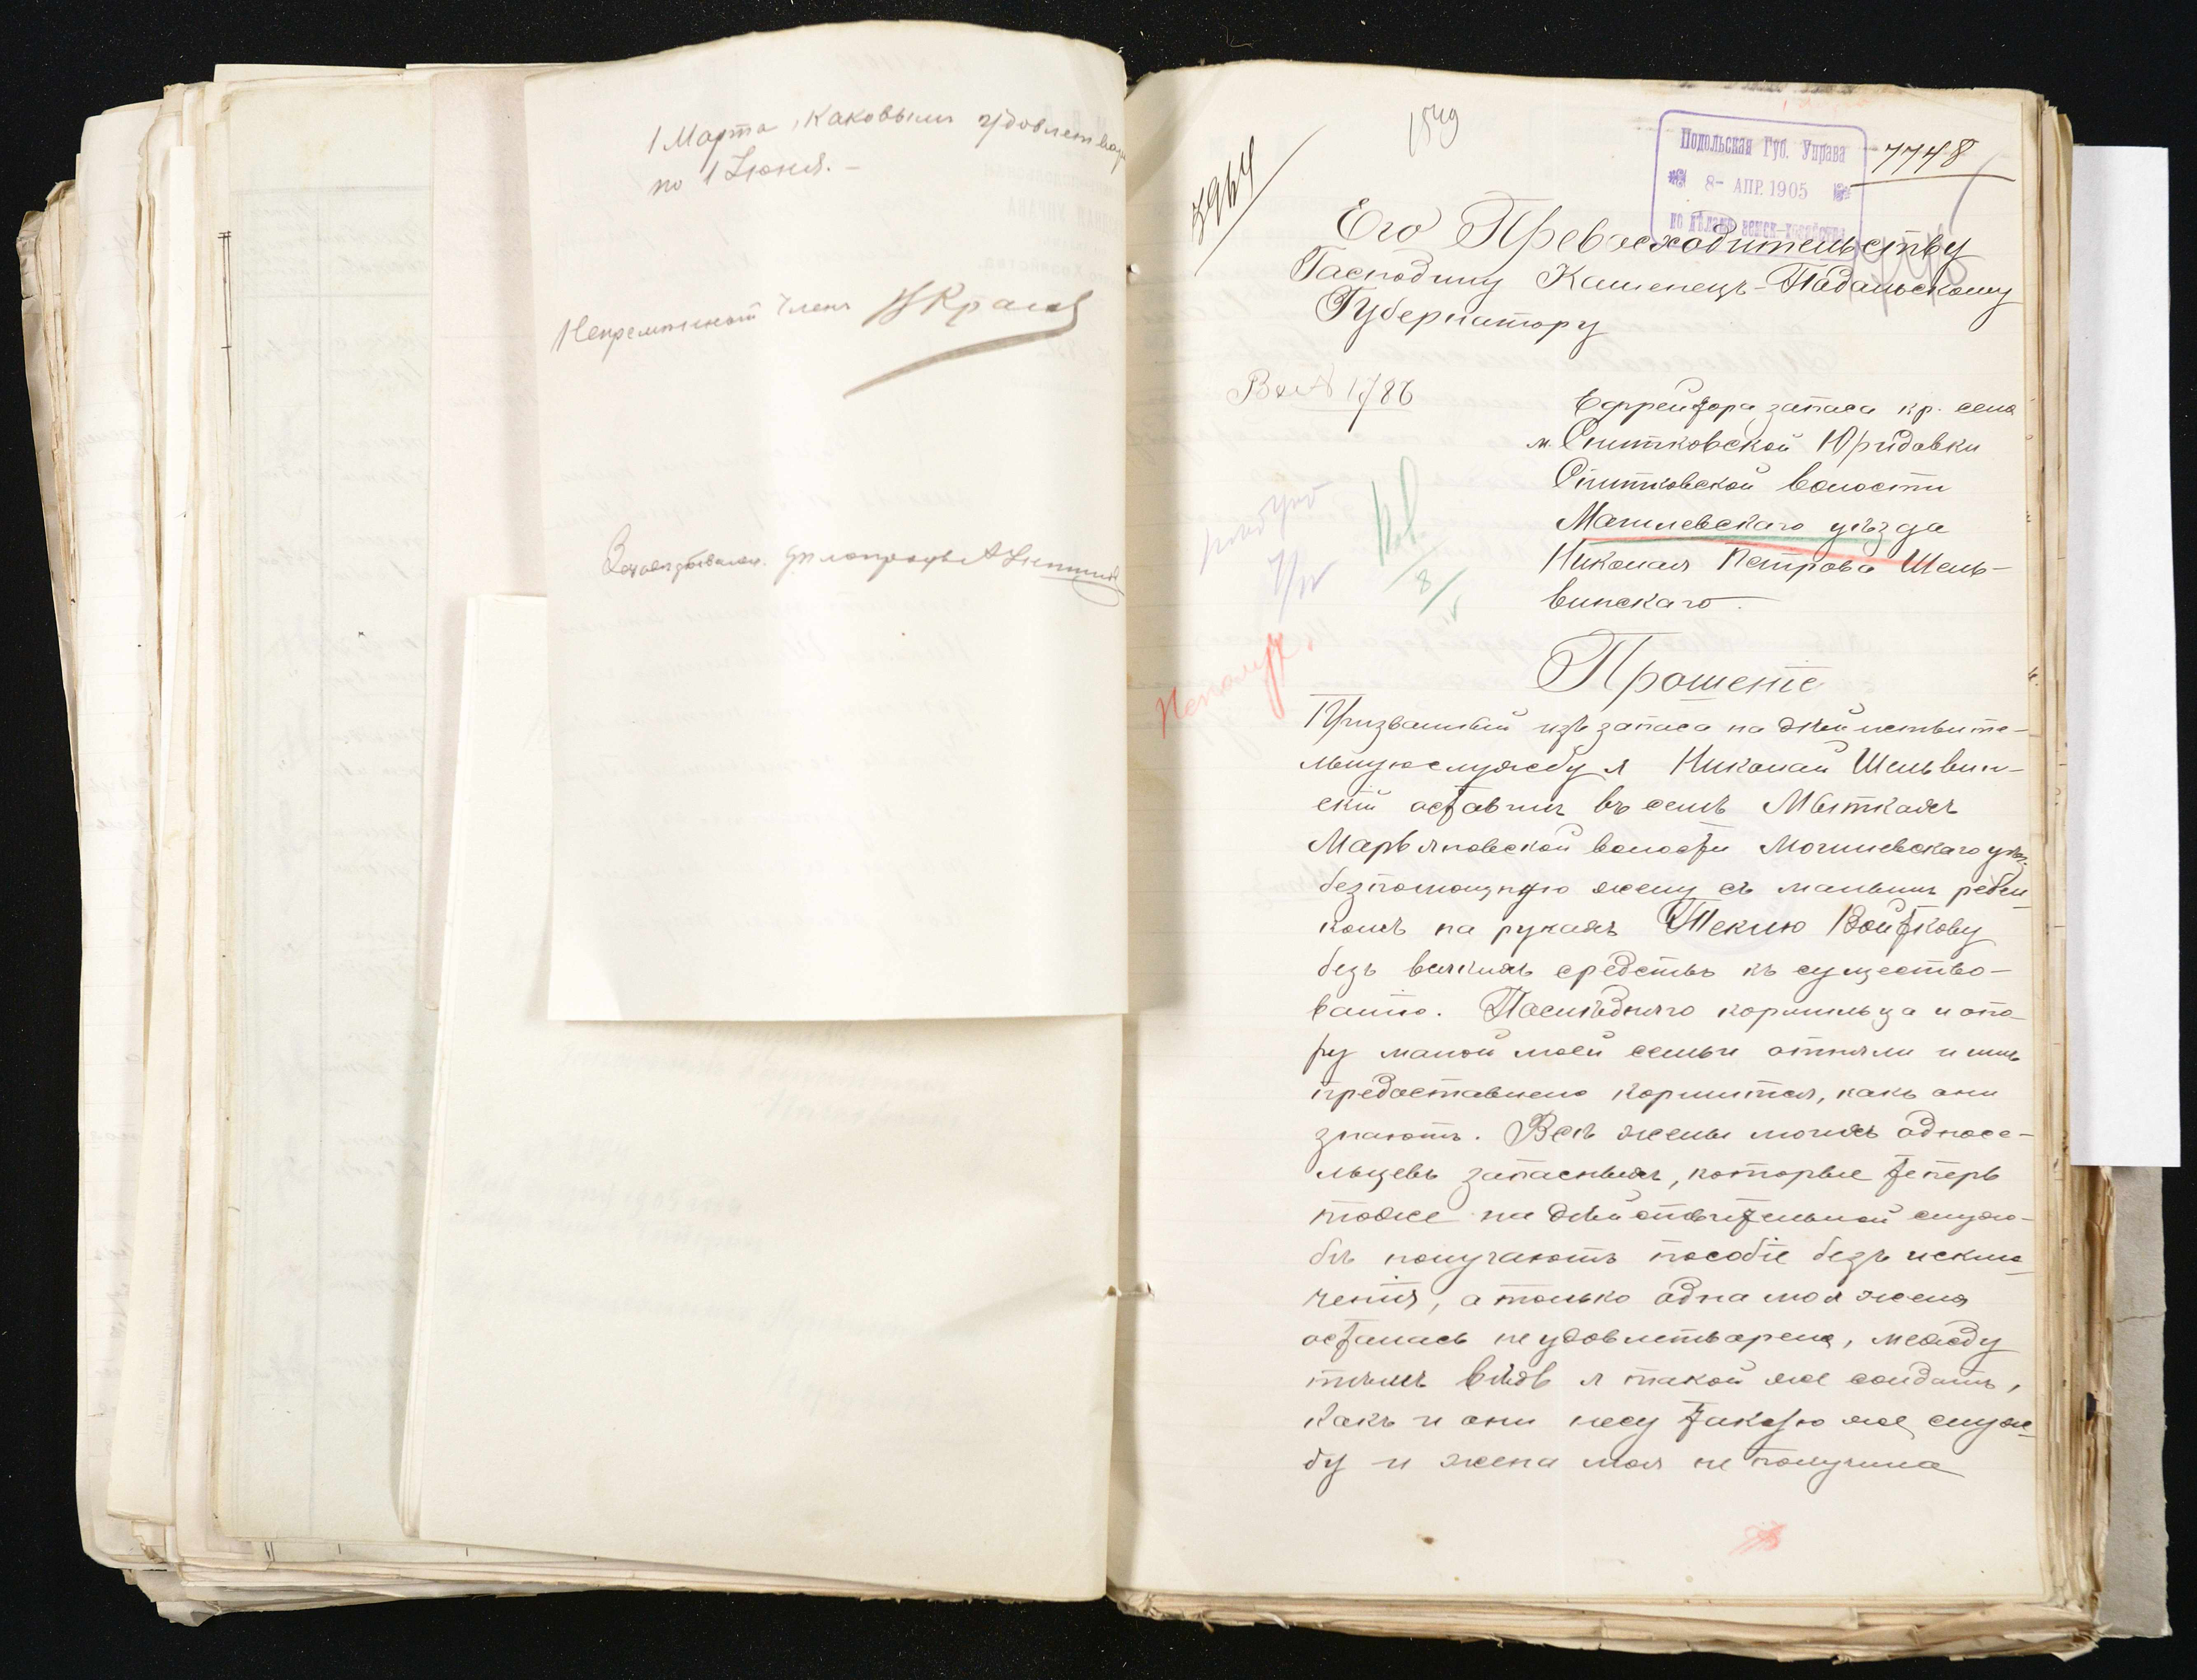 1 Марта, каковымъ удовлетвор
по 1 Іюня. –
Непремѣнный Членъ
1549
3964
Подольская Губ. Управа
8- АПР. 1905
по дѣламъ земск. хозяйства
7748
Его Превосходительству
Господину Каменецъ-Подольскому
Губернатору
Вх № 1786
Ефрейтора запаса кр. села
м. Снитковской Юридовки
Снитковской волости
Могилевскаго уѣзда
Николая Петрова Шель-
винскаго.
8/IV
Прошеніе
Призванный изъ запаса на дѣйствите-
льную службу я Николай Шельвин-
скій оставилъ въ селѣ Мыткахъ
Марьяновской волости Могилевскаго уѣз.
безпомощную жену съ малымъ ребен-
комъ на рукахъ Теклю Войткову
безъ всякихъ средствъ къ существо-
ванію. Послѣдняго кормильца и опо-
ру малой моей семьи отняли и имъ
предоставлено кормится, какъ они
знаютъ. Всѣ жены моихъ односе-
льцевъ запасныхъ, которые теперь
тоже на дѣйствительной служ-
бѣ получаютъ пособіе безъ исклю-
ченія, а только одна моя жена
осталась не удовлетворена, между
тѣмъ вѣдь я такой же солдатъ,
какъ и они несу такую же служ-
бу и жена моя не получила